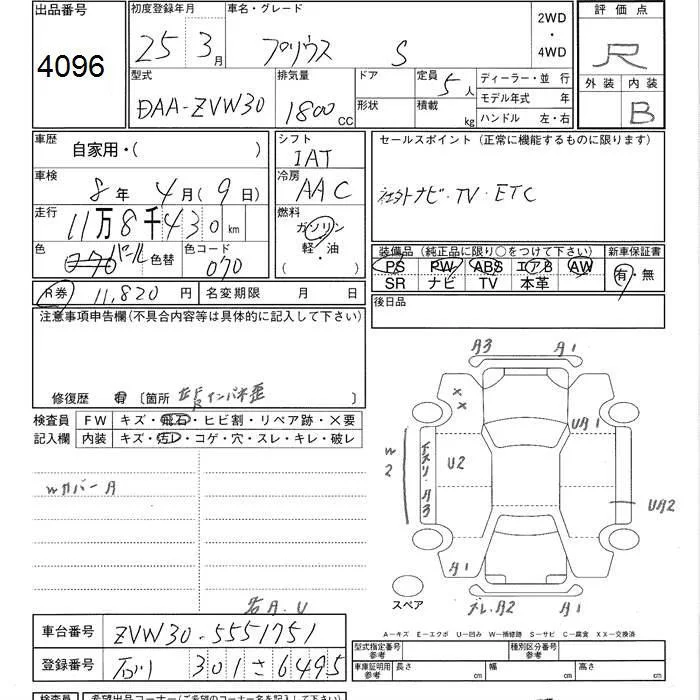 出品番号 初度登録年月 車名・グレード 2WD ・ 4WD 評価点
4096 25年 3月 プリウス S R
型式 排気量 ドア 定員 5人 ディーラー・並行 外装 内装
DAA-ZVW30 1800CC 形状 積載 kg モデル年式 年 B
ハンドル 左・右
車歴 自家用・( ) シフト IAT セールスポイント (正常に機能するものに限ります)
車検 8年 4月(9日) 冷房 AAC 社外ナビ・TV・ETC
走行 11万8千430km 燃料 ガソリン
色 070 パール 色替 色コード 070 軽・油 ( )
装備品 (純正品に限り○をつけて下さい) 新車保証書
PS PW ABS エアB AW 有・無
SR ナビ TV 本革
R券 11,820円 名変期限 月 日 後日品
注意事項申告欄(不具合内容等は具体的に記入して下さい)
修復歴 有 〔箇所 〕
検査員 FW キズ・飛石・ヒビ割・リペア跡・×要
記入欄 内装 キズ・汚レ・コゲ・穴・スレ・キレ・破レ
A3 A1
UA1
W2 U2
A3
UA2
Wカバー A
A1 A2 A1
スペア
A・U
A-キズ E-エクボ U-凹ミ W-補修跡 S-サビ C-腐食 XX-交換済
車台番号 ZVW30-5551751
登録番号 石川 301 さ 6495
型式指定番号 参考 種別区分番号 参考
車庫証明用 参考 長さ cm 幅 cm 高さ cm
検査員 希望出品コーナー(ご希望のコーナー名を記入して下さい)